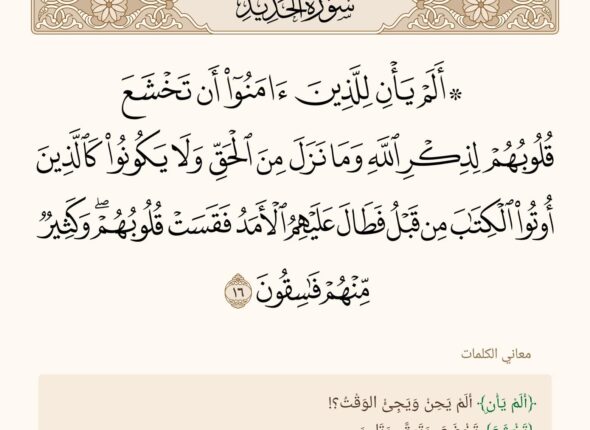 سُورَةُ الحَدِيدِ
۞ أَلَمْ يَأْنِ لِلَّذِينَ ءَامَنُوٓا۟ أَن تَخْشَعَ
قُلُوبُهُمْ لِذِكْرِ ٱللَّهِ وَمَا نَزَلَ مِنَ ٱلْحَقِّ وَلَا يَكُونُوا۟ كَٱلَّذِينَ
أُوتُوا۟ ٱلْكِتَٰبَ مِن قَبْلُ فَطَالَ عَلَيْهِمُ ٱلْأَمَدُ فَقَسَتْ قُلُوبُهُمْ ۖ وَكَثِيرٌ
مِّنْهُمْ فَٰسِقُونَ ١٦
معاني الكلمات
﴿أَلَمْ يَأْنِ﴾ أَلَمْ يَحِنْ وَيَجِئِ الوَقْتُ؟!